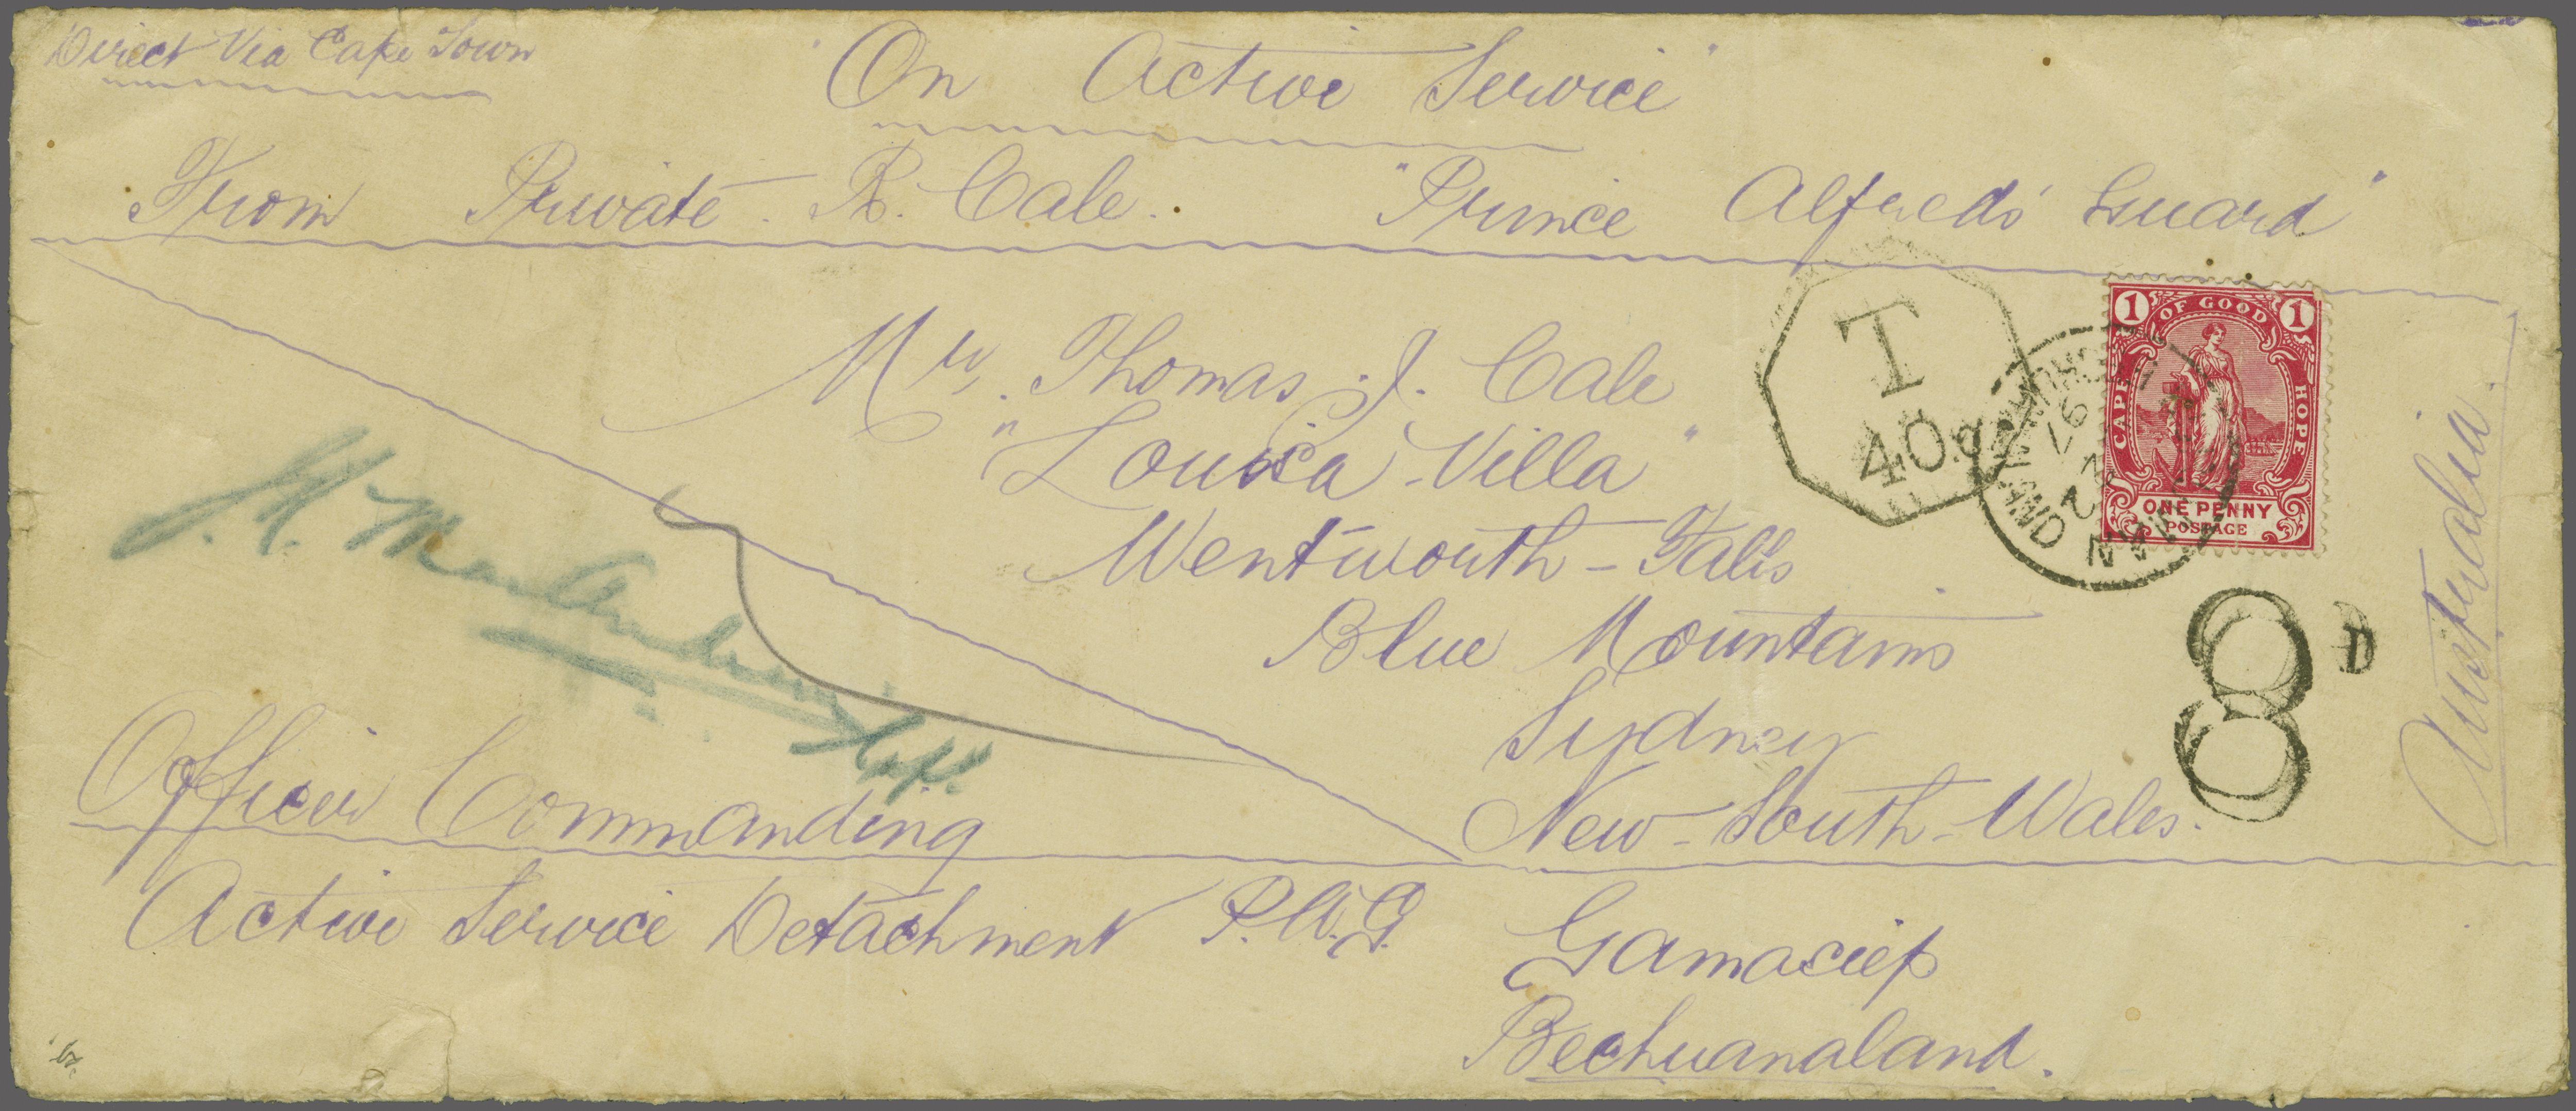 Direct Via Cape Town
"On Active Service"
From Private. R. Cale. "Prince Alfred's Guard"
Mr. Thomas. J. Cale
"Louisa-Villa"
Wentworth-Falls
Blue Mountains
Sydney
New-South-Wales.
Australia.
T
40c.
1 1
CAPE OF GOOD HOPE
ONE PENNY
POSTAGE
97
8D
Capt
Officer Commanding
Active Service Detachment P.A.G.
Gamaciep
Bechuanaland.